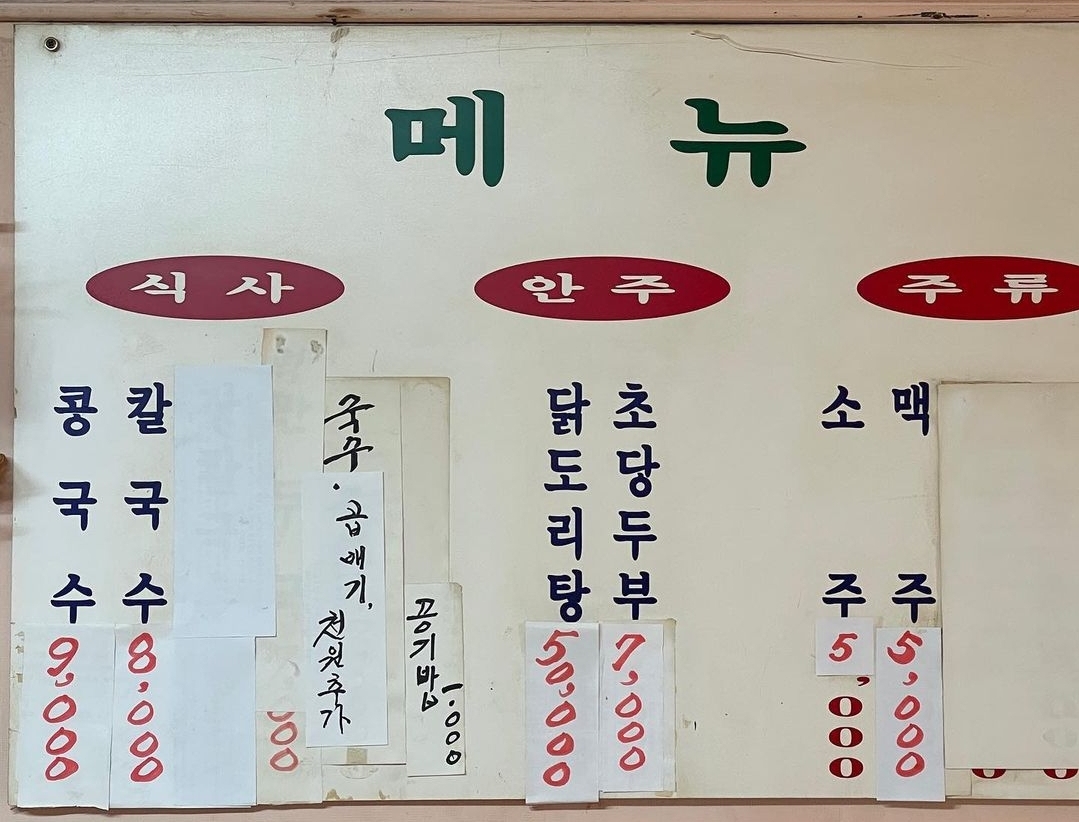 메뉴
식사
콩국수 9,000
칼국수 8,000
국수·곱빼기, 천원추가
공기밥 1,000
안주
닭도리탕 50,000
초당두부 7,000
주류
소주 5,000
맥주 5,000